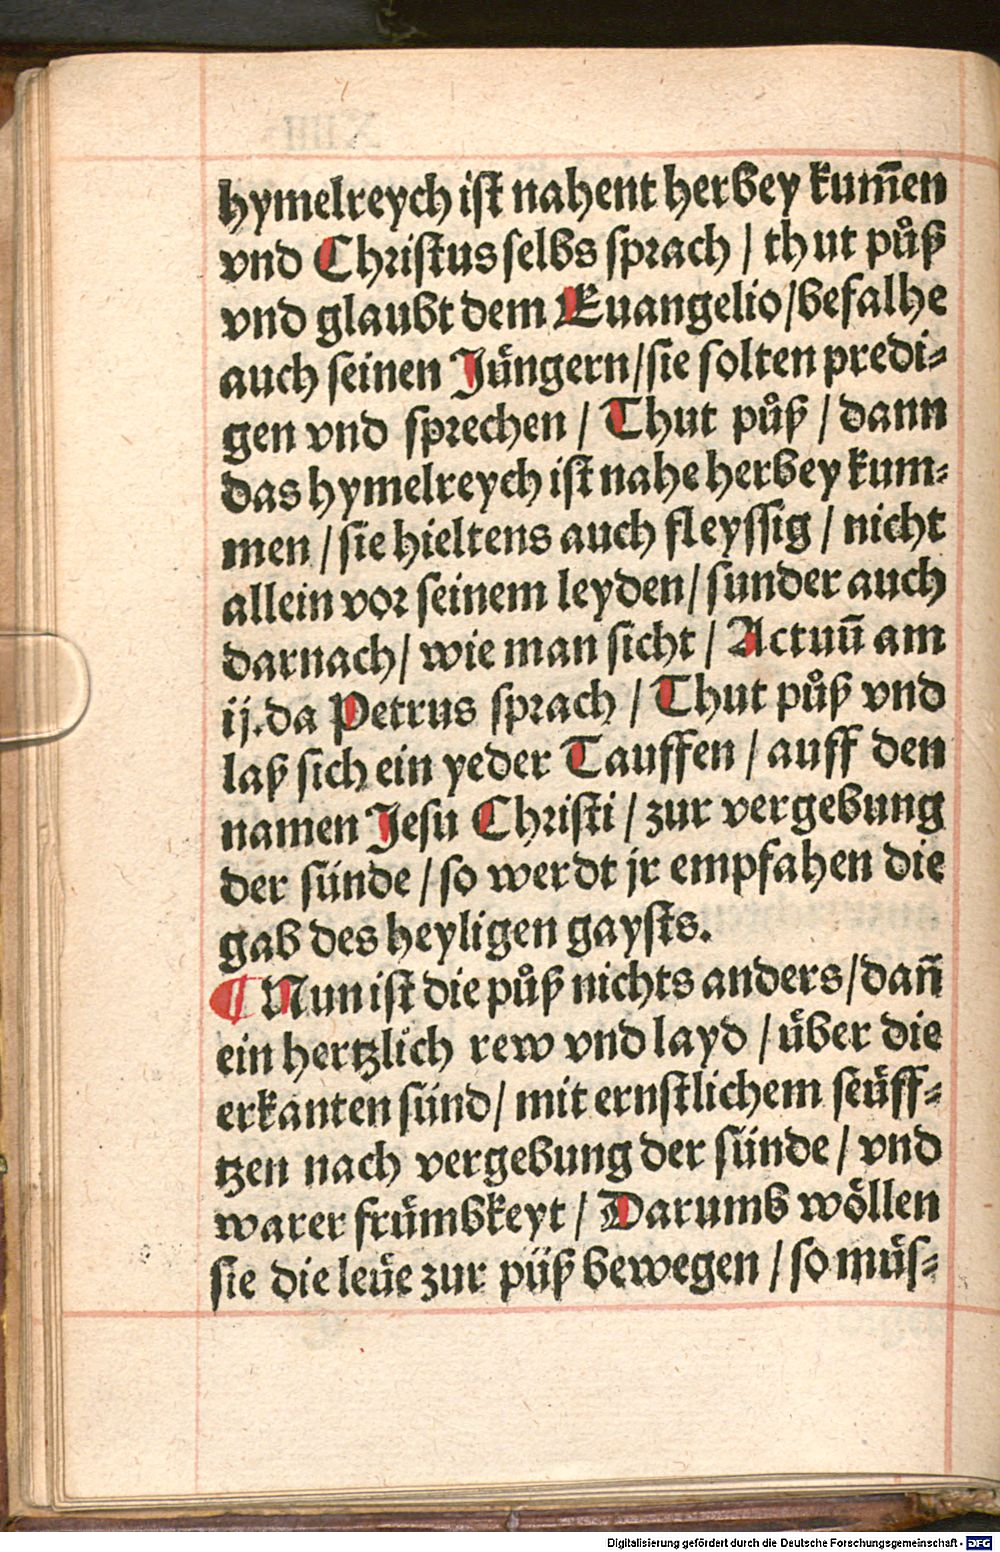 hymelreych ist nahent herbey kum̄en
vnd Christus selbs sprach / thut půß
vnd glaubt dem Euangelio/befalhe
auch seinen Jüngern/sie solten predi⸗
gen vnd sprechen / Thut půß / dann
das hymelreych ist nahe herbey kum⸗
men / sie hieltens auch fleyssig / nicht
allein vor seinem leyden/ sunder auch
darnach/ wie man sicht / Actuū am
ij. da Petrus sprach / Thut půß vnd
laß sich ein yeder Tauffen / auff den
namen Jesu Christi / zur vergebung
der sünde / so werdt jr empfahen die
gab des heyligen gaysts.
¶ Nun ist die půß nichts anders/dan̄
ein hertzlich rew vnd layd / über die
erkanten sünd/ mit ernstlichem seüff⸗
tzen nach vergebung der sünde / vnd
warer frümbkeyt / Darumb wöllen
sie die leüe zur püß bewegen / so müs⸗
Digitalisierung gefördert durch die Deutsche Forschungsgemeinschaft - DFG